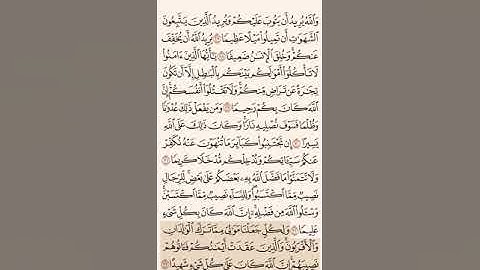 وَاللَّهُ يُرِيدُ أَن يَتُوبَ عَلَيْكُمْ وَيُرِيدُ الَّذِينَ يَتَّبِعُونَ
الشَّهَوَاتِ أَن تَمِيلُوا مَيْلًا عَظِيمًا ۝ يُرِيدُ اللَّهُ أَن يُخَفِّفَ
عَنكُمْ ۚ وَخُلِقَ الْإِنسَانُ ضَعِيفًا ۝ يَا أَيُّهَا الَّذِينَ ءَامَنُوا
لَا تَأْكُلُوا أَمْوَالَكُم بَيْنَكُم بِالْبَاطِلِ إِلَّا أَن تَكُونَ
تِجَارَةً عَن تَرَاضٍ مِّنكُمْ ۚ وَلَا تَقْتُلُوا أَنفُسَكُمْ ۚ إِنَّ
اللَّهَ كَانَ بِكُمْ رَحِيمًا ۝ وَمَن يَفْعَلْ ذَٰلِكَ عُدْوَانًا
وَظُلْمًا فَسَوْفَ نُصْلِيهِ نَارًا ۚ وَكَانَ ذَٰلِكَ عَلَى اللَّهِ
يَسِيرًا ۝ إِن تَجْتَنِبُوا كَبَائِرَ مَا تُنْهَوْنَ عَنْهُ نُكَفِّرْ
عَنكُمْ سَيِّئَاتِكُمْ وَنُدْخِلْكُم مُّدْخَلًا كَرِيمًا ۝
وَلَا تَتَمَنَّوْا مَا فَضَّلَ اللَّهُ بِهِ بَعْضَكُمْ عَلَىٰ بَعْضٍ ۚ لِّلرِّجَالِ
نَصِيبٌ مِّمَّا اكْتَسَبُوا ۖ وَلِلنِّسَاءِ نَصِيبٌ مِّمَّا اكْتَسَبْنَ ۚ
وَسْئَلُوا اللَّهَ مِن فَضْلِهِ ۗ إِنَّ اللَّهَ كَانَ بِكُلِّ شَيْءٍ
عَلِيمًا ۝ وَلِكُلٍّ جَعَلْنَا مَوَالِيَ مِمَّا تَرَكَ الْوَالِدَانِ
وَالْأَقْرَبُونَ ۚ وَالَّذِينَ عَقَدَتْ أَيْمَانُكُمْ فَـَٔاتُوهُمْ
نَصِيبَهُمْ ۚ إِنَّ اللَّهَ كَانَ عَلَىٰ كُلِّ شَيْءٍ شَهِيدًا ۝